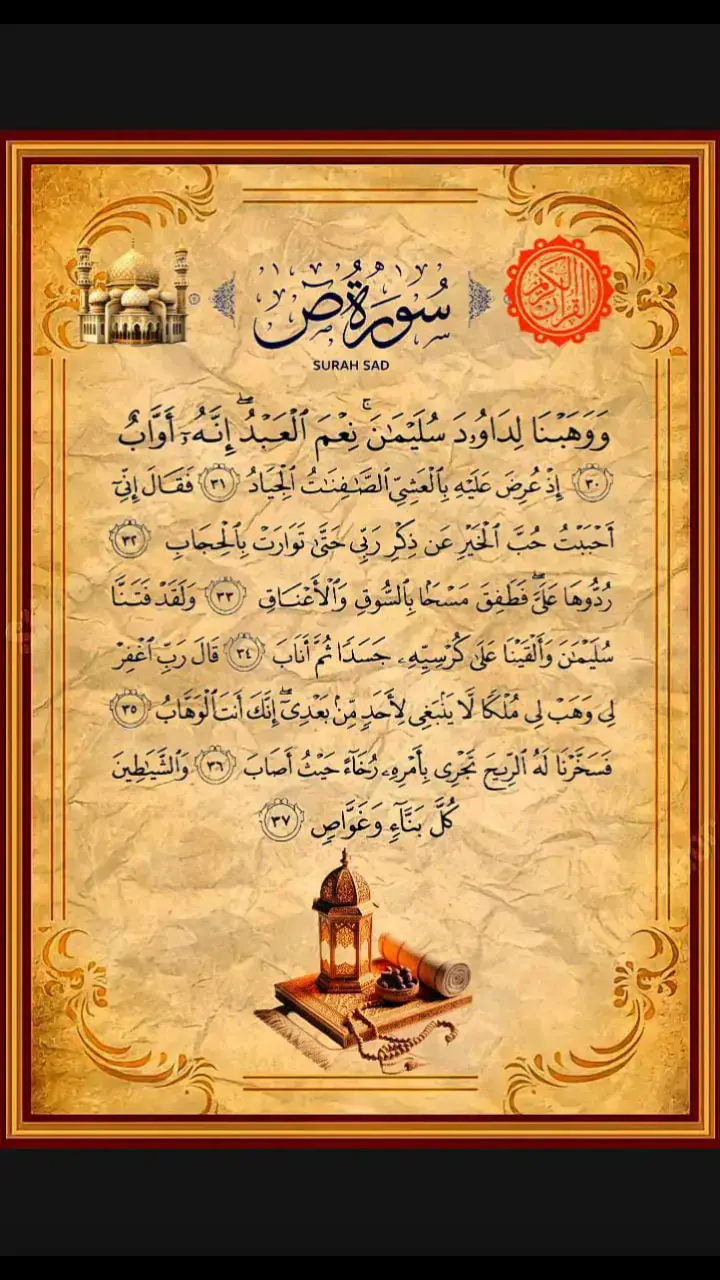 سُورَةُ صٓ
القرآن الكريم
SURAH SAD
وَوَهَبْنَا لِدَاوُۥدَ سُلَيْمَـٰنَ ۚ نِعْمَ ٱلْعَبْدُ ۖ إِنَّهُۥٓ أَوَّابٌ
﴿٣٠﴾ إِذْ عُرِضَ عَلَيْهِ بِٱلْعَشِىِّ ٱلصَّـٰفِنَـٰتُ ٱلْجِيَادُ ﴿٣١﴾ فَقَالَ إِنِّىٓ
أَحْبَبْتُ حُبَّ ٱلْخَيْرِ عَن ذِكْرِ رَبِّى حَتَّىٰ تَوَارَتْ بِٱلْحِجَابِ ﴿٣٢﴾
رُدُّوهَا عَلَىَّ ۖ فَطَفِقَ مَسْحًۢا بِٱلسُّوقِ وَٱلْأَعْنَاقِ ﴿٣٣﴾ وَلَقَدْ فَتَنَّا
سُلَيْمَـٰنَ وَأَلْقَيْنَا عَلَىٰ كُرْسِيِّهِۦ جَسَدًا ثُمَّ أَنَابَ ﴿٣٤﴾ قَالَ رَبِّ ٱغْفِرْ
لِى وَهَبْ لِى مُلْكًا لَّا يَنۢبَغِى لِأَحَدٍ مِّنۢ بَعْدِىٓ ۖ إِنَّكَ أَنتَ ٱلْوَهَّابُ ﴿٣٥﴾
فَسَخَّرْنَا لَهُ ٱلرِّيحَ تَجْرِى بِأَمْرِهِۦ رُخَآءً حَيْثُ أَصَابَ ﴿٣٦﴾ وَٱلشَّيَـٰطِينَ
كُلَّ بَنَّآءٍ وَغَوَّاصٍ ﴿٣٧﴾